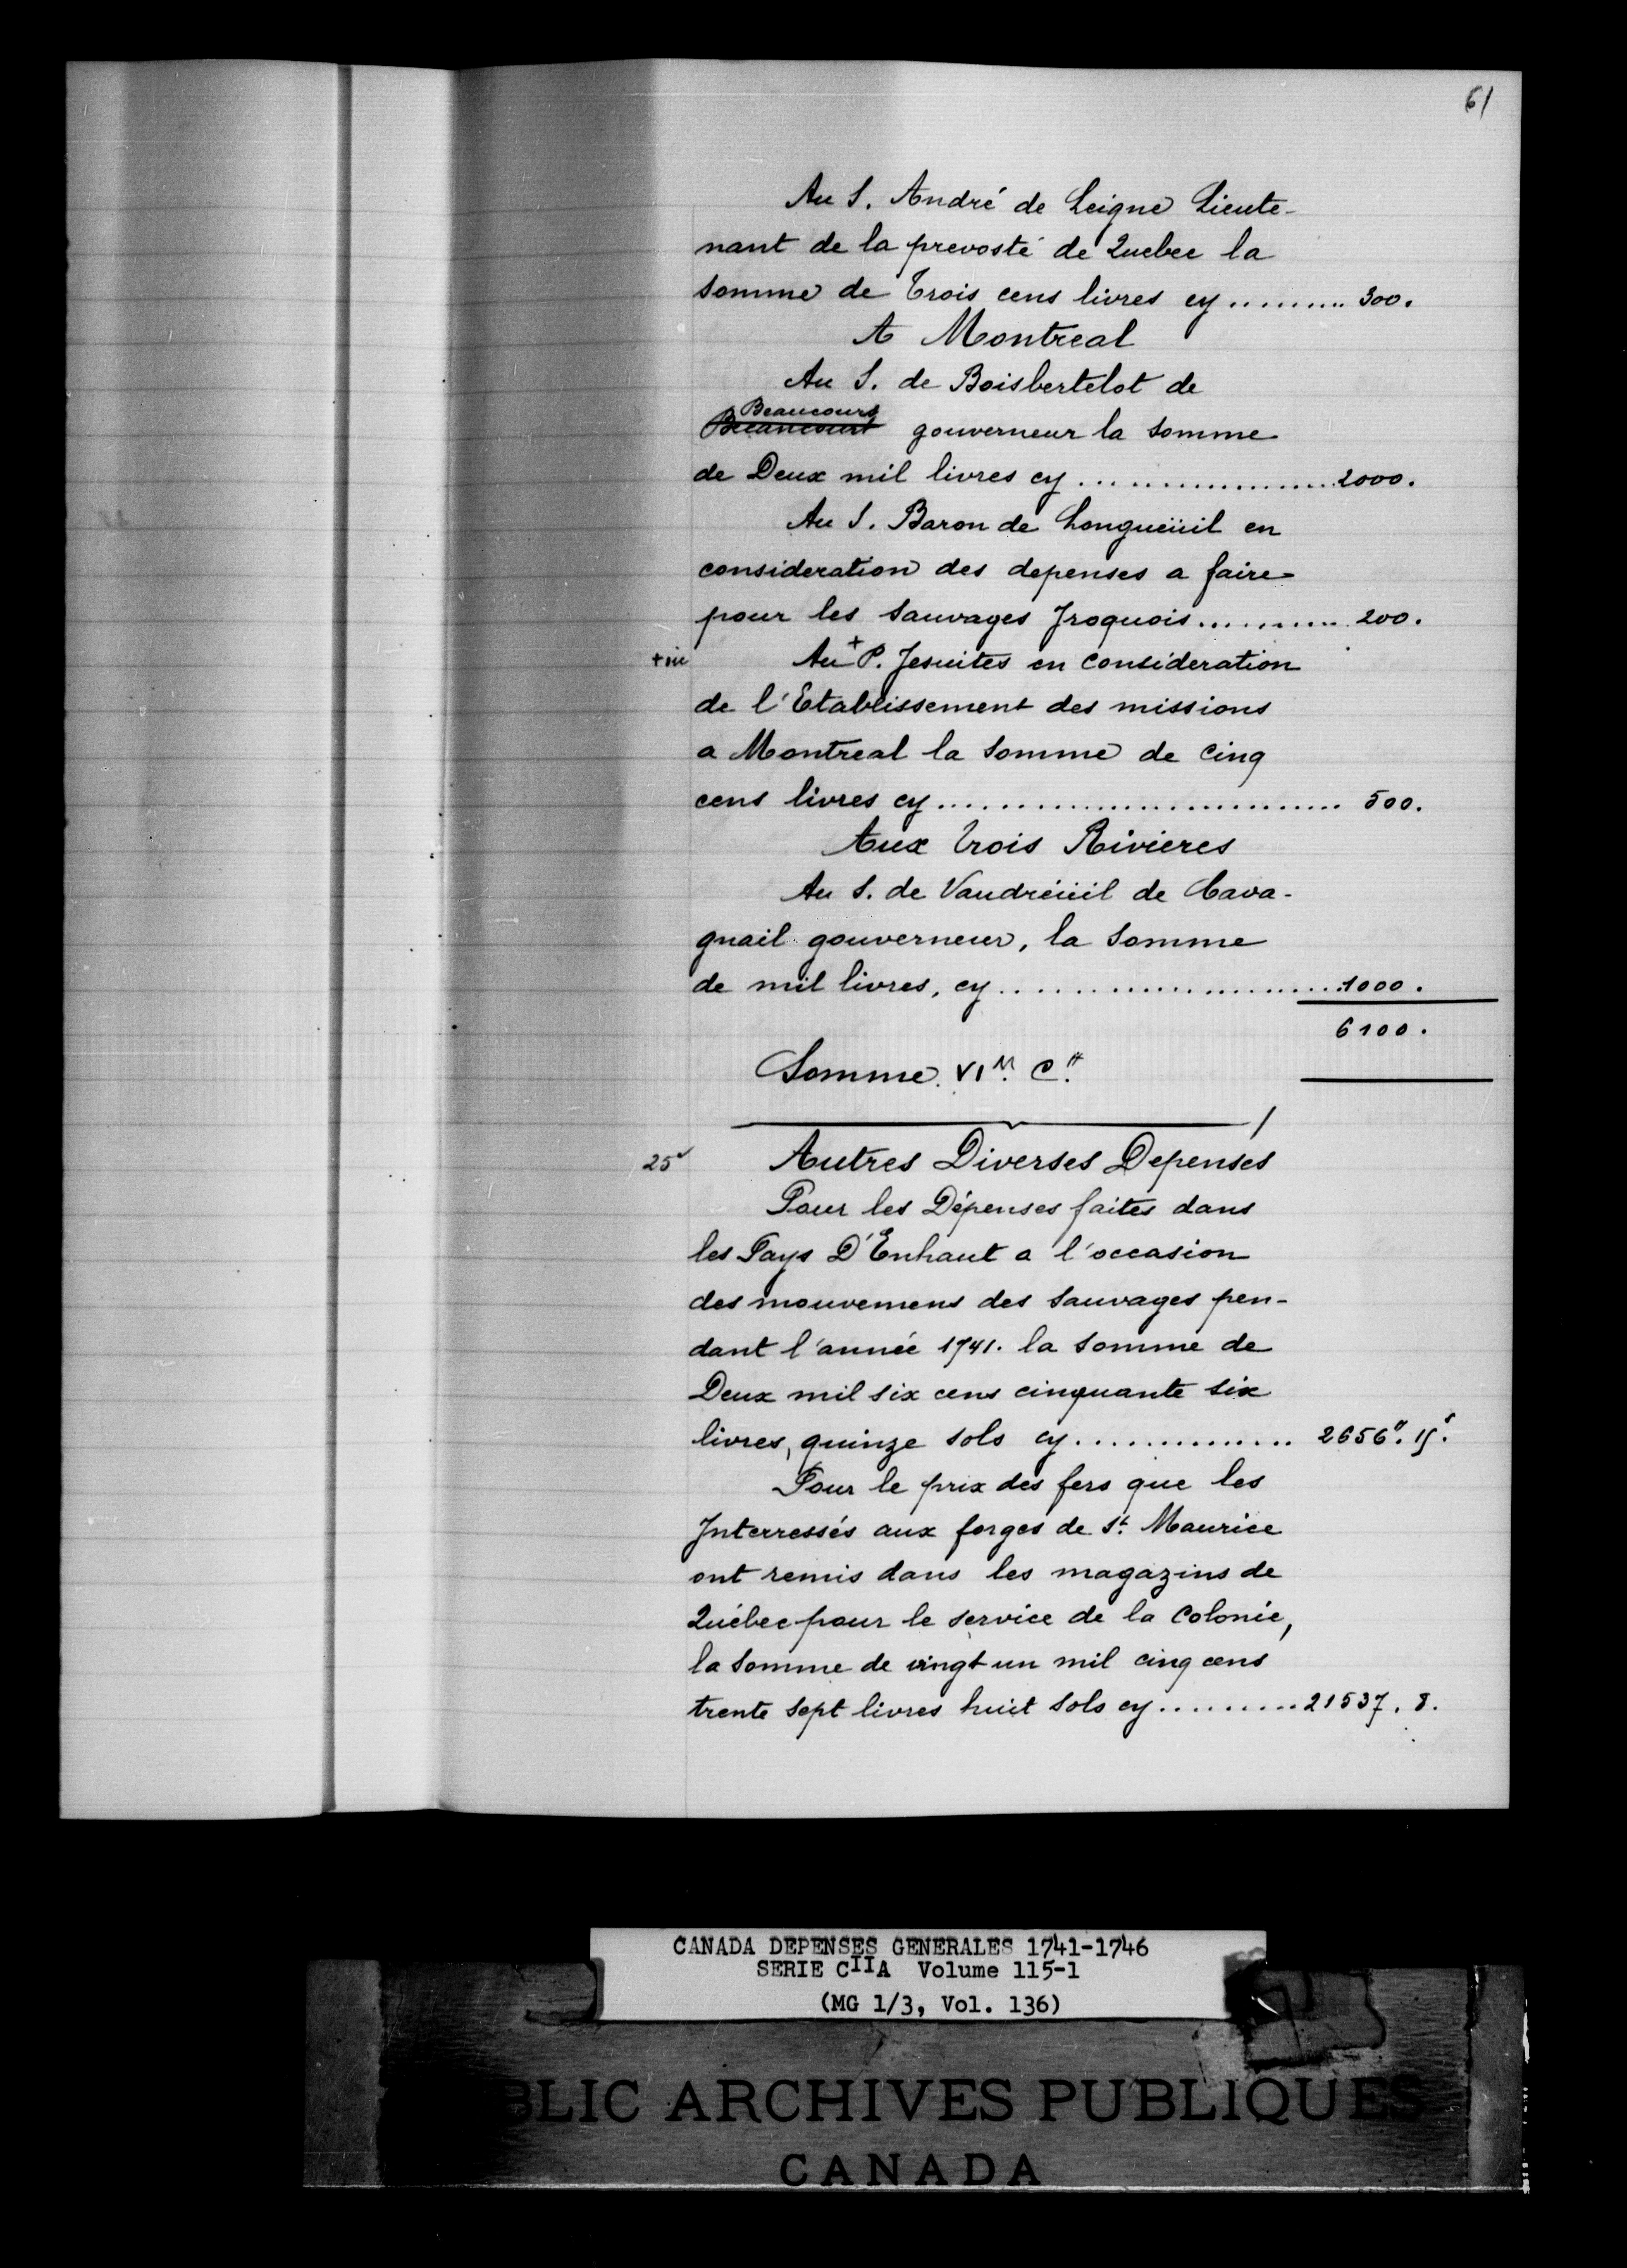 61
Au S. André de Leigne Lieute-
nant de la prevosté de Quebec la
somme de Trois cens livres cy ......... 300.
A Montreal
Au S. de Boisbertelot de
Beaucours
Beaucourt gouverneur la somme
de Deux mil livres cy .................. 2000.
Au S. Baron de Longueüil en
consideration des depenses a faire
pour les sauvages Iroquois ........... 200.
+ Au + P. Jesuites en consideration
de l'Etablissement des missions
a Montreal la somme de cinq
cens livres cy ............................ 500.
Aux Trois Rivieres
Au S. de Vaudreüil de Cava-
gnail gouverneur, la somme
de mil livres, cy ........................ 1000.
6100.
Somme. VI M. C ₶.
25 Autres Diverses Depenses
Pour les Dépenses faites dans
les Pays D'Enhaut a l'occasion
des mouvemens des sauvages pen-
dant l'année 1741. la somme de
Deux mil six cens cinquante six
livres, quinze sols cy .............. 2656₶. 15s.
Pour le prix des fers que les
Interressés aux forges de St. Maurice
ont remis dans les magazins de
Québec pour le service de la Colonie,
la somme de vingt un mil cinq cens
trente sept livres huit sols cy .......... 21537. 8.
CANADA DEPENSES GENERALES 1741-1746
SERIE CIIA Volume 115-1
(MG 1/3, Vol. 136)
BLIC ARCHIVES PUBLIQUES
CANADA